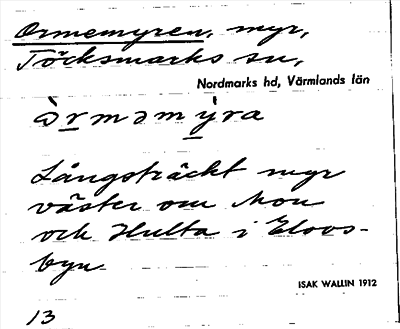 Ormemyren, myr,
Töcksmarks sn,
Nordmarks hd, Värmlands län
ὰrməmýra
Långsträckt myr
väster om Mon
och Hulta i Eloos-
byn.
ISAK WALLIN 1912
13